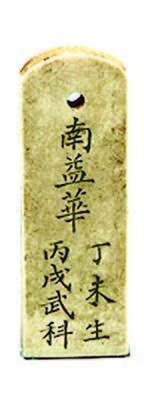 南益華
丁未生
丙戌武科